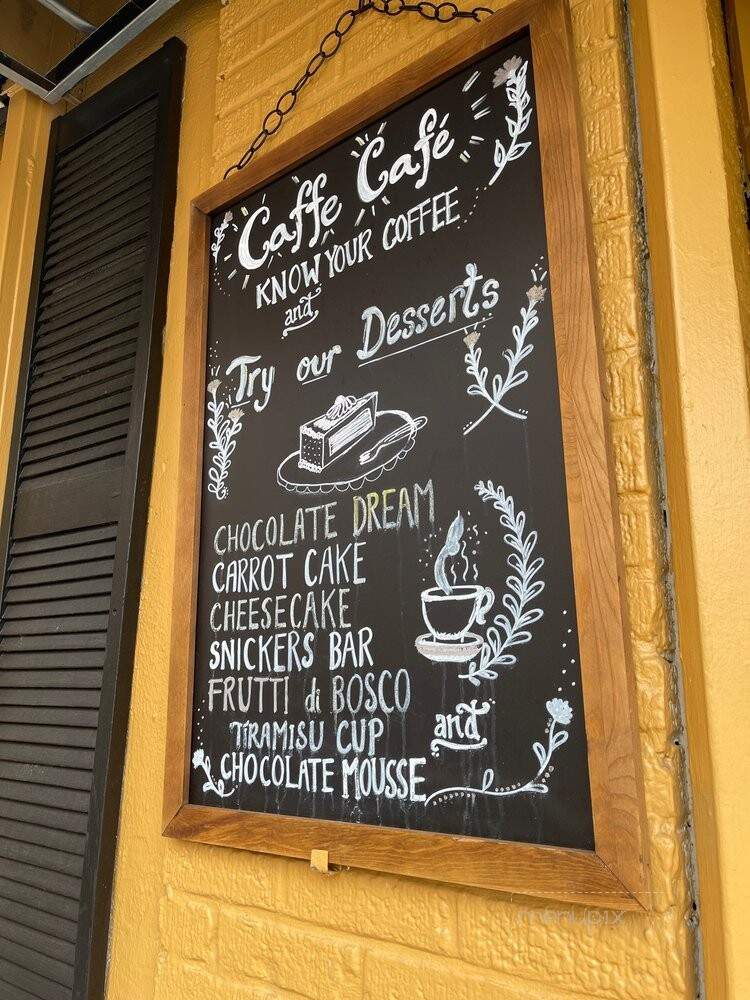 Caffe Café
KNOW YOUR COFFEE
and
Try our Desserts
CHOCOLATE DREAM
CARROT CAKE
CHEESECAKE
SNICKERS BAR
FRUTTI di BOSCO
TIRAMISU CUP and
CHOCOLATE MOUSSE
menupix